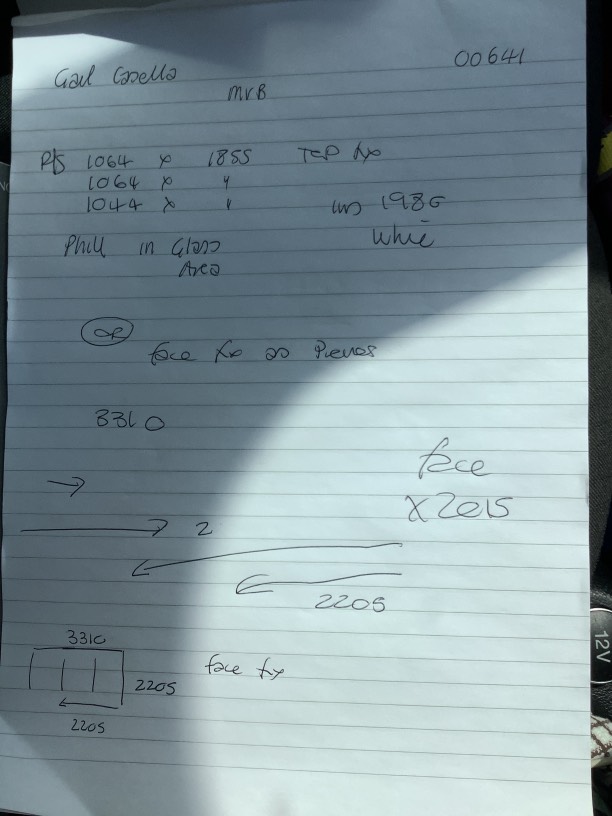 Gail Casella
00641
MVB
R/S 1064 x 1855 TOP fix
1064 x "
1044 x "
1986
White
Phill in Glass
Area
OR
face fix as Previos
3310
face
x 2015
2
2205
3310
face fix
2205
2205
12V